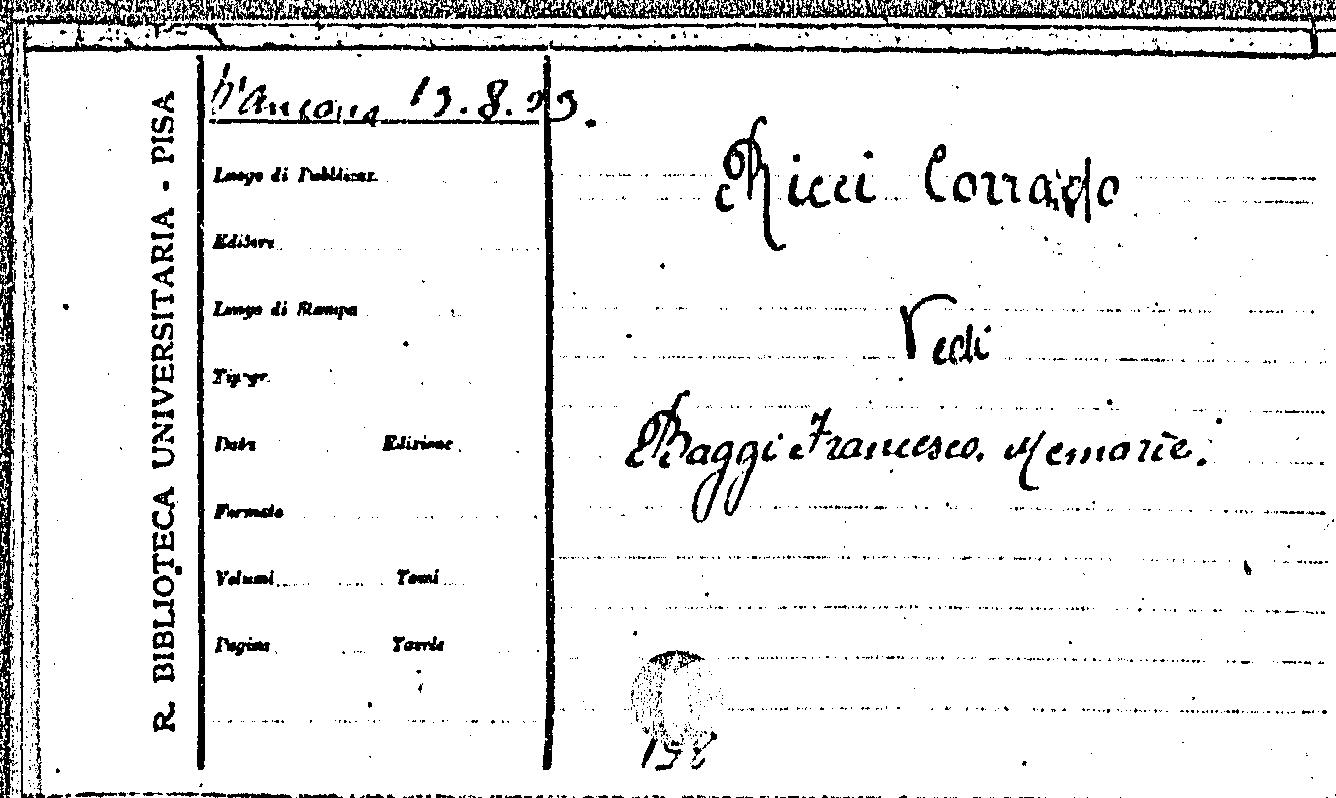 R. BIBLIOTECA UNIVERSITARIA - PISA
D'Ancona 13.8.23.
Luogo di Pubblicaz.
Editore
Luogo di Stampa
Tipogr.
Data Edizione
Formato
Volumi Tomi
Pagine Tavole
Ricci Corrado
Vedi
Baggi Francesco. Memorie.